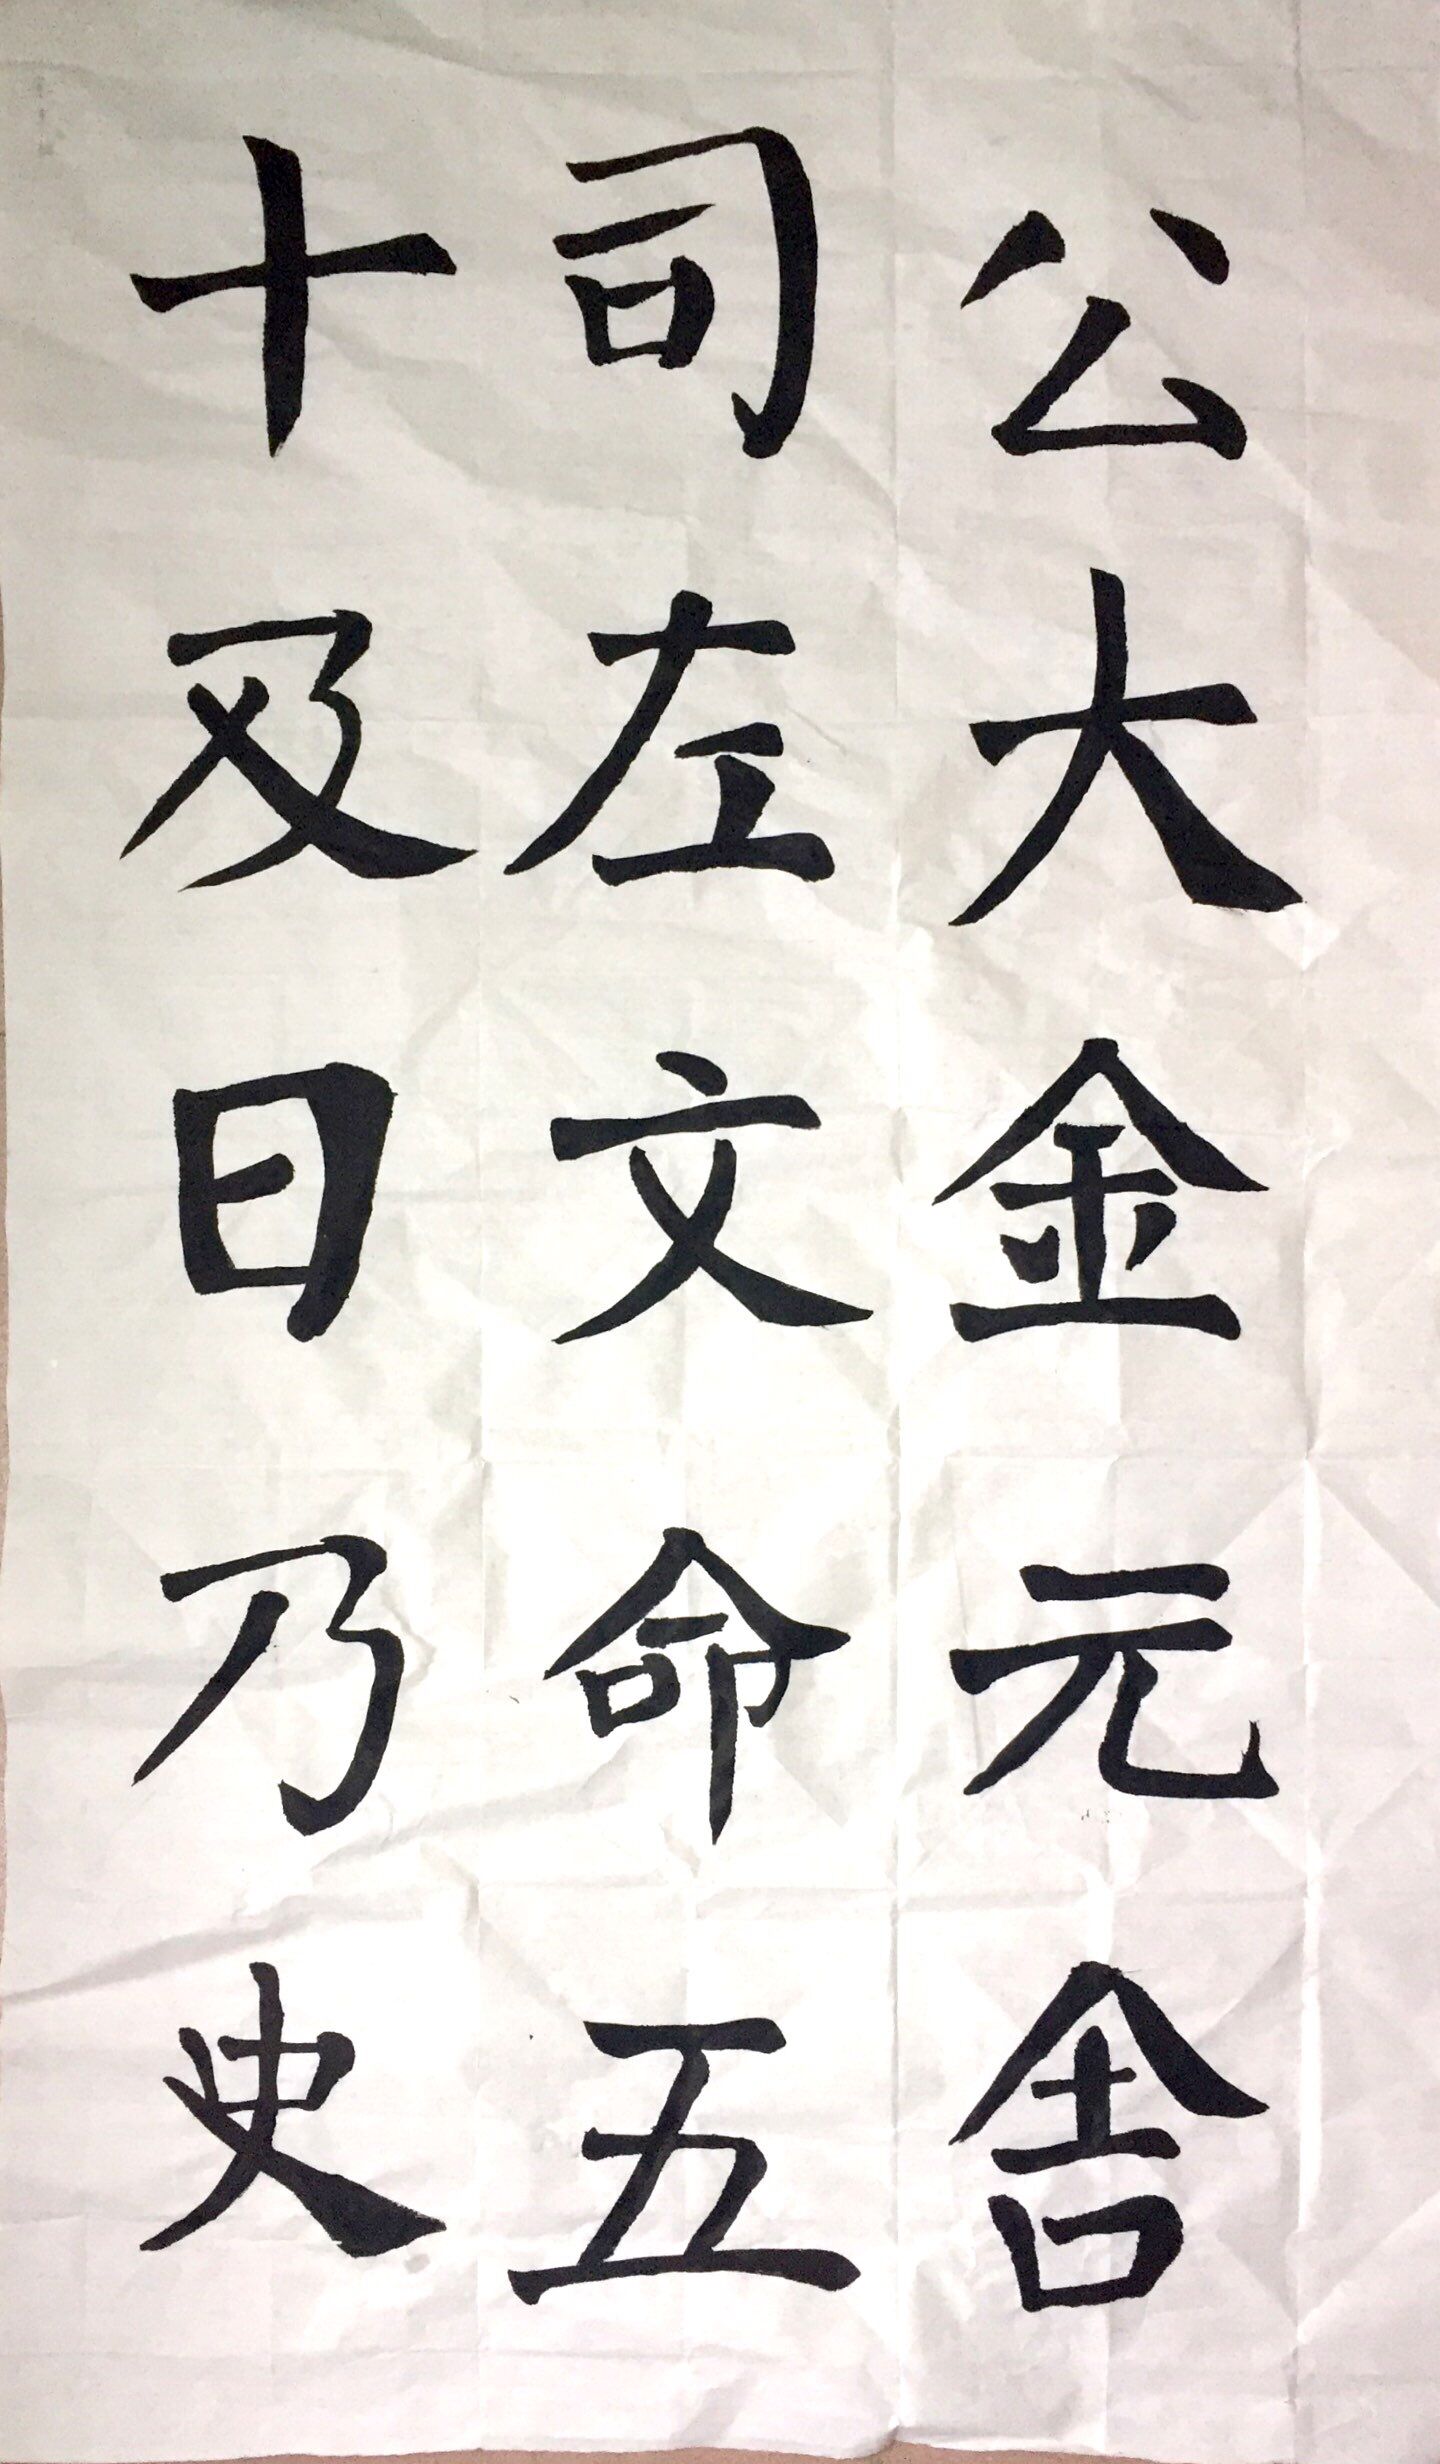 公大金元舎
司左文命五
十及日乃史